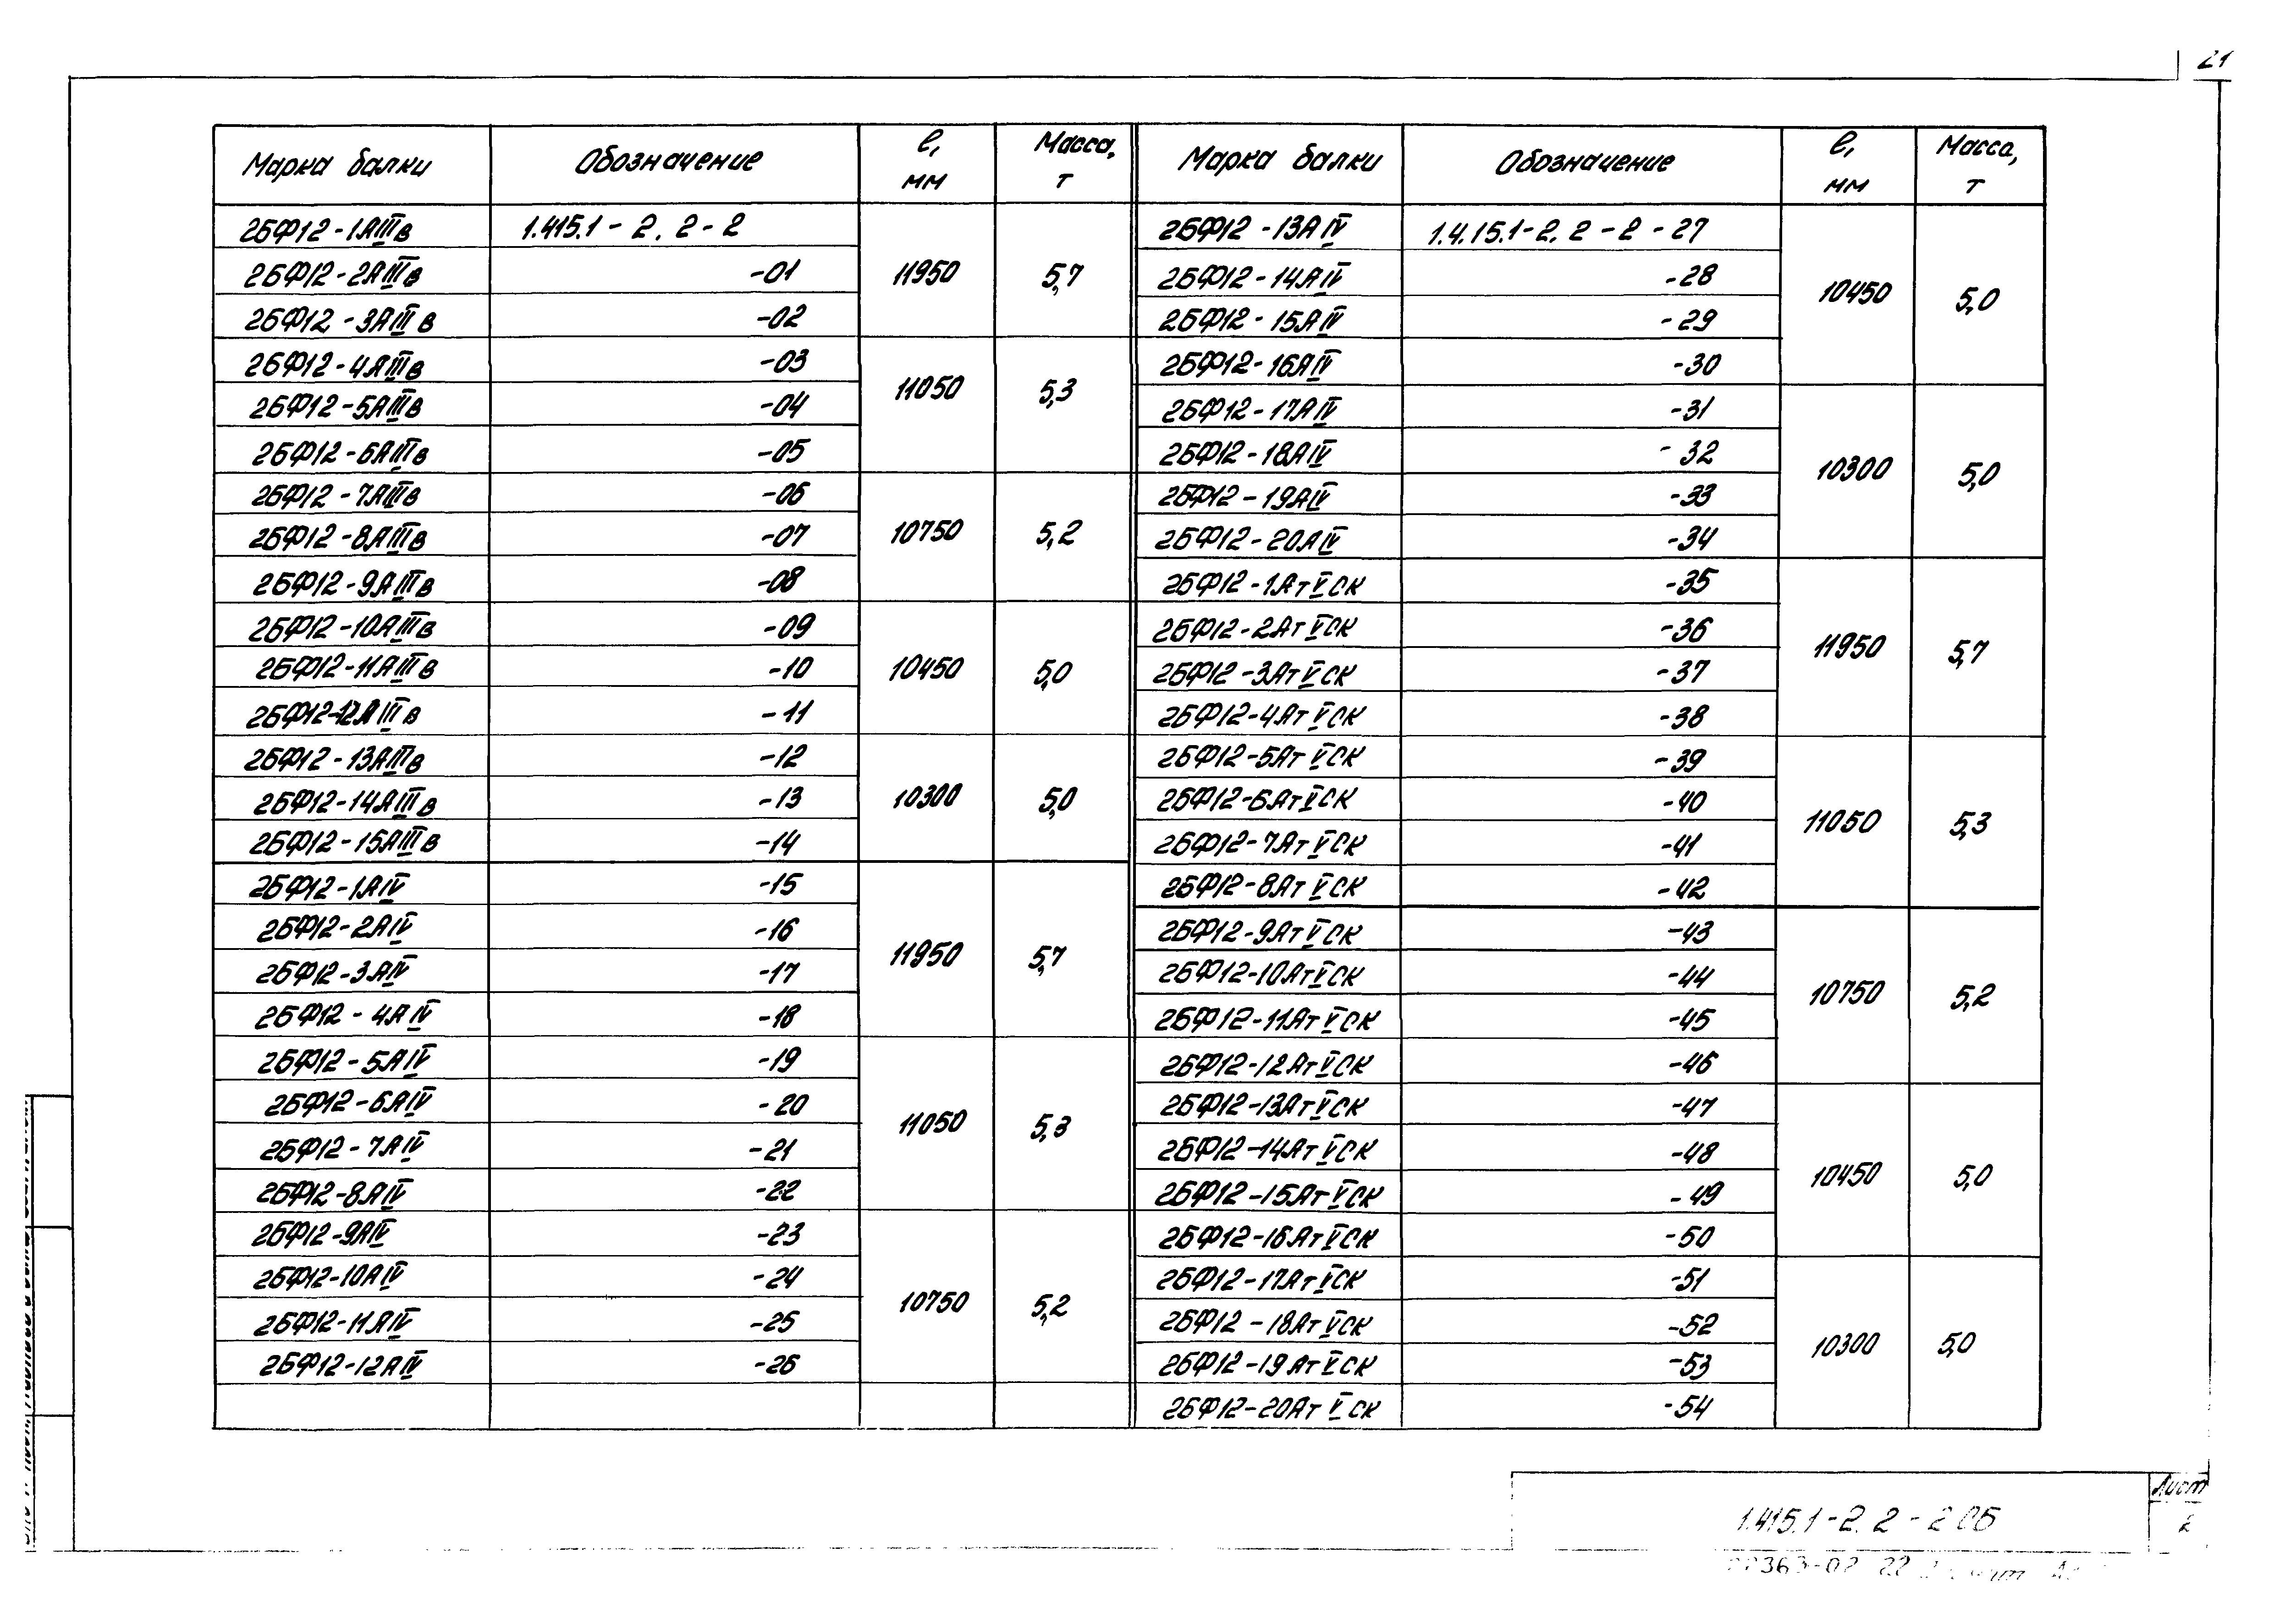 21
Марка балки Обозначение ℓ, мм Масса, т Марка балки Обозначение ℓ, мм Масса, т
2БФ12-1АIIIв 1.415.1-2.2-2 11950 5,7
2БФ12-2АIIIв -01
2БФ12-3АIIIв -02
2БФ12-4АIIIв -03 11050 5,3
2БФ12-5АIIIв -04
2БФ12-6АIIIв -05
2БФ12-7АIIIв -06 10750 5,2
2БФ12-8АIIIв -07
2БФ12-9АIIIв -08
2БФ12-10АIIIв -09 10450 5,0
2БФ12-11АIIIв -10
2БФ12-12АIIIв -11
2БФ12-13АIIIв -12 10300 5,0
2БФ12-14АIIIв -13
2БФ12-15АIIIв -14
2БФ12-1АIV -15 11950 5,7
2БФ12-2АIV -16
2БФ12-3АIV -17
2БФ12-4АIV -18
2БФ12-5АIV -19 11050 5,3
2БФ12-6АIV -20
2БФ12-7АIV -21
2БФ12-8АIV -22
2БФ12-9АIV -23 10750 5,2
2БФ12-10АIV -24
2БФ12-11АIV -25
2БФ12-12АIV -26
2БФ12-13АIV 1.4.15.1-2.2-2-27 10450 5,0
2БФ12-14АIV -28
2БФ12-15АIV -29
2БФ12-16АIV -30
2БФ12-17АIV -31 10300 5,0
2БФ12-18АIV -32
2БФ12-19АIV -33
2БФ12-20АIV -34
2БФ12-1АтVСК -35 11950 5,7
2БФ12-2АтVСК -36
2БФ12-3АтVСК -37
2БФ12-4АтVСК -38
2БФ12-5АтVСК -39 11050 5,3
2БФ12-6АтVСК -40
2БФ12-7АтVСК -41
2БФ12-8АтVСК -42
2БФ12-9АтVСК -43 10750 5,2
2БФ12-10АтVСК -44
2БФ12-11АтVСК -45
2БФ12-12АтVСК -46
2БФ12-13АтVСК -47 10450 5,0
2БФ12-14АтVСК -48
2БФ12-15АтVСК -49
2БФ12-16АтVСК -50
2БФ12-17АтVСК -51 10300 5,0
2БФ12-18АтVСК -52
2БФ12-19АтVСК -53
2БФ12-20АтVСК -54
1.415.1-2.2-2СБ
Лист
2
22